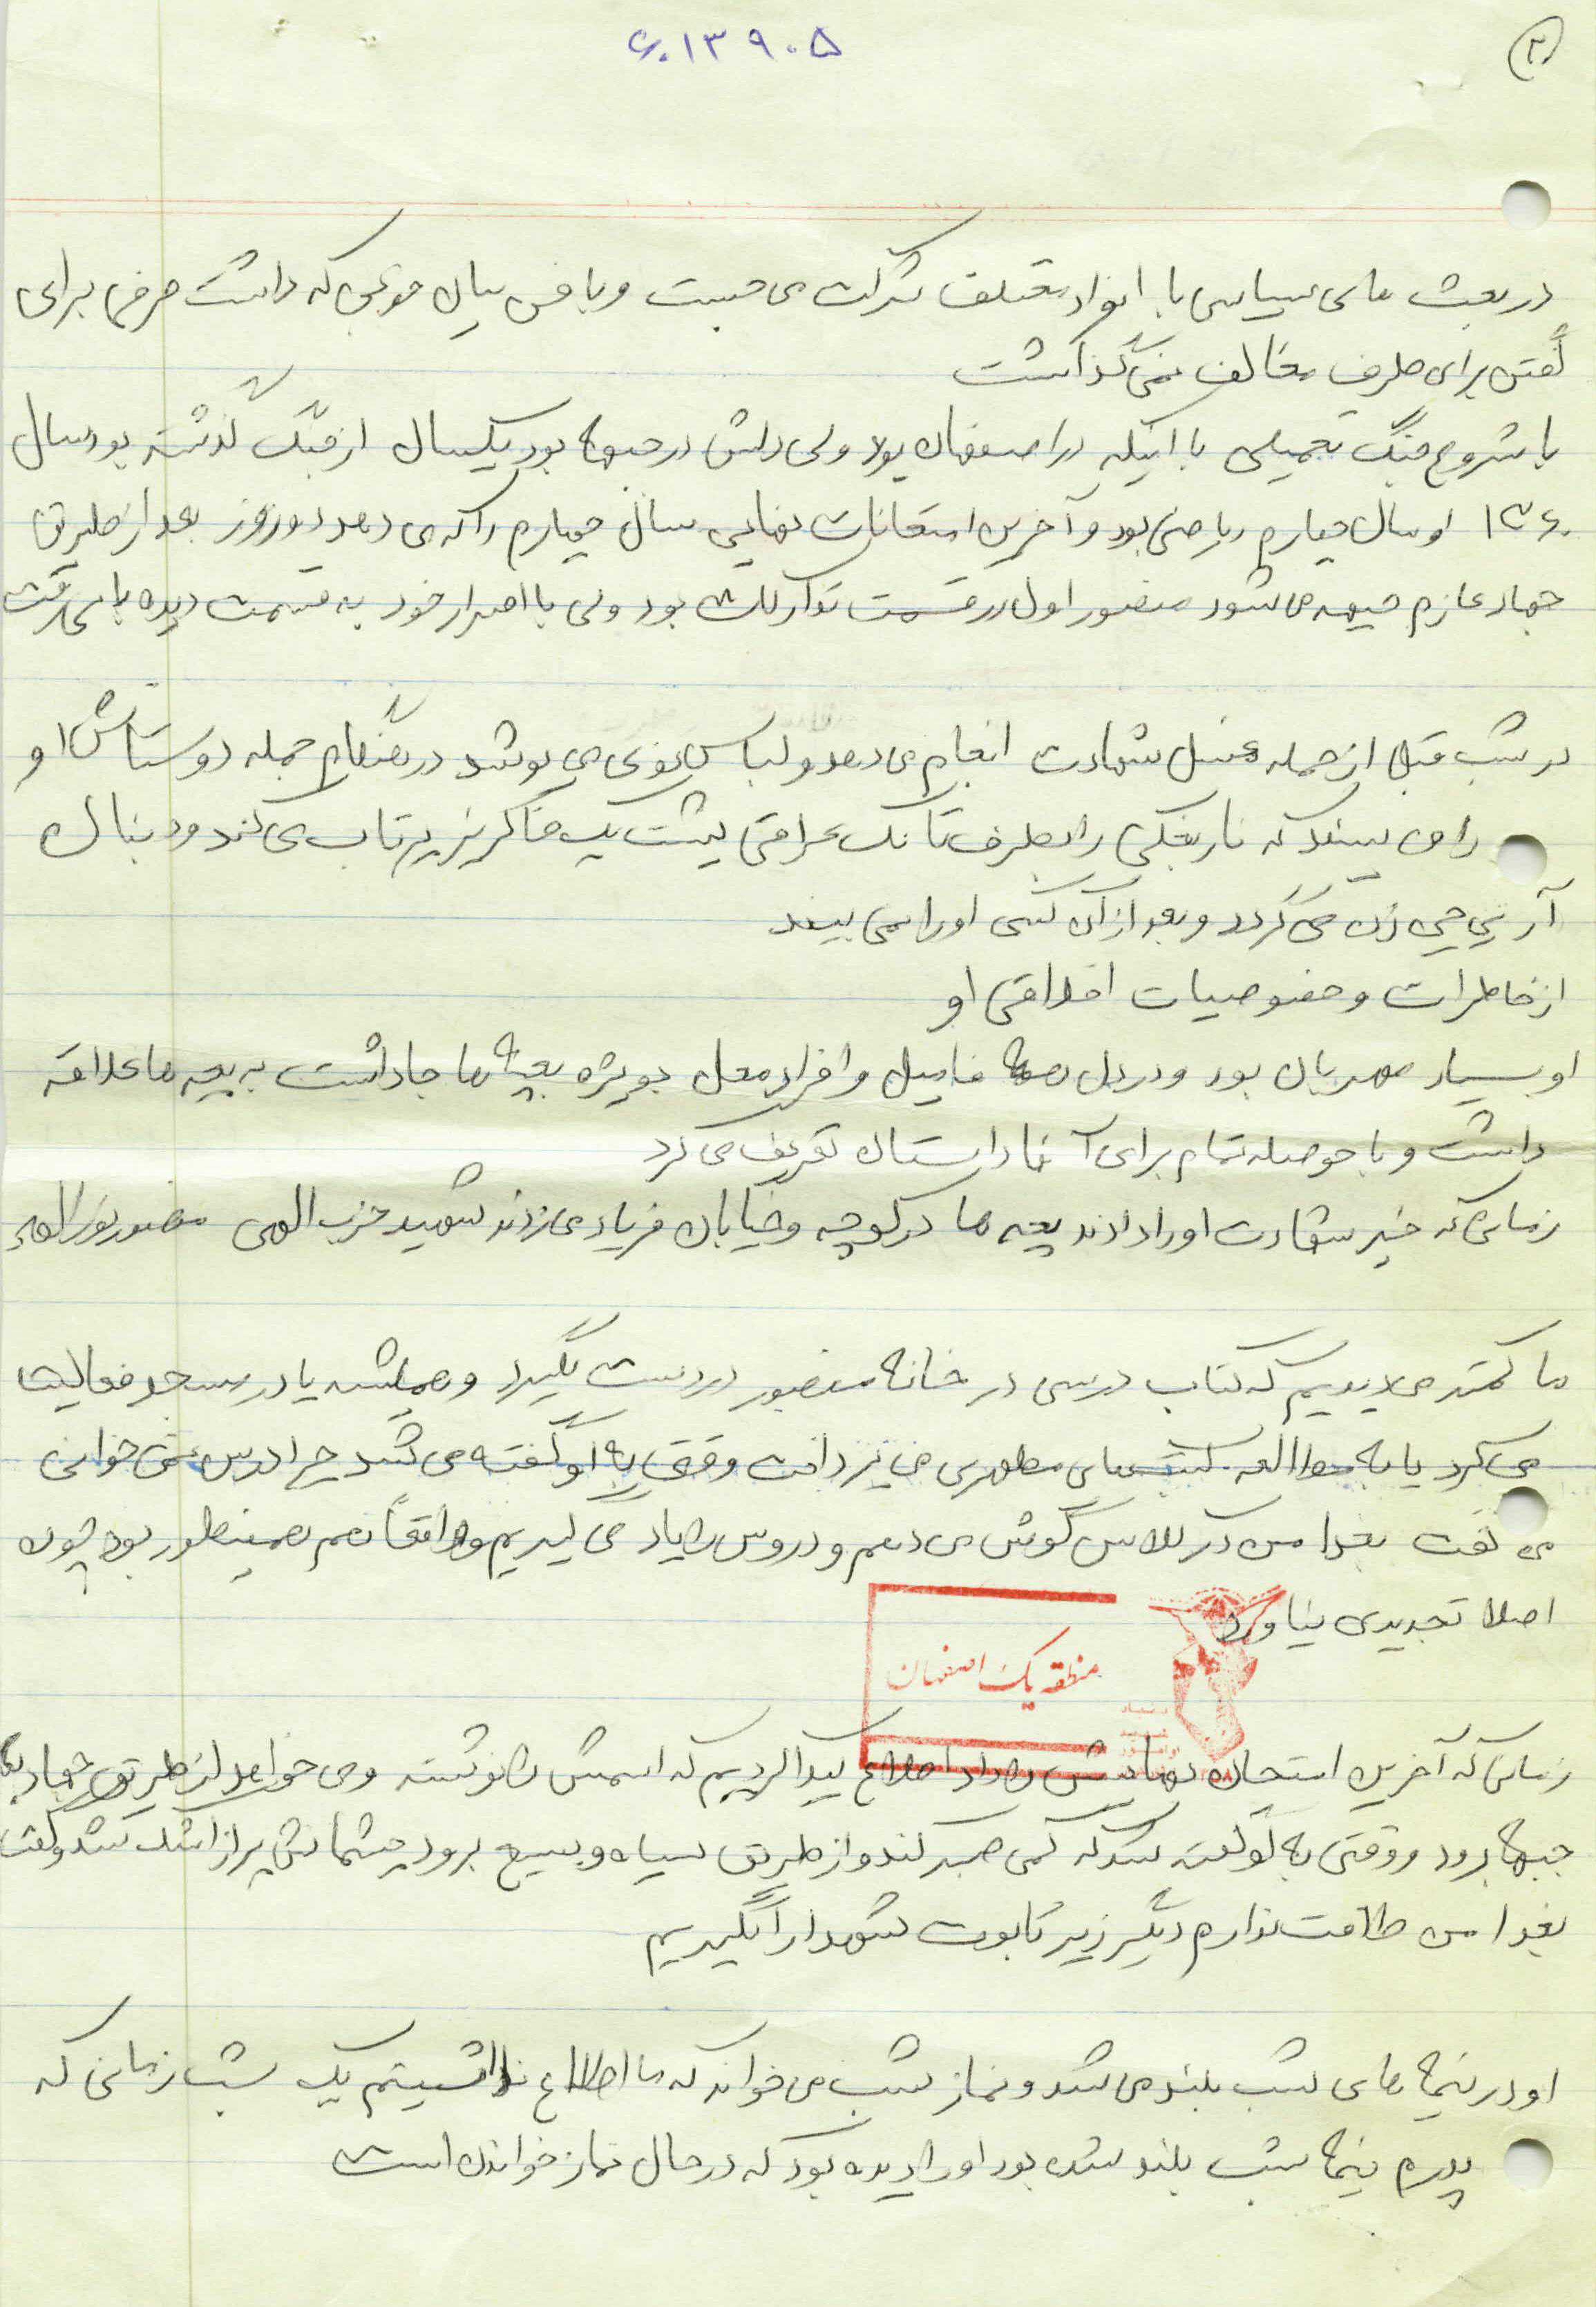 ۲
۶۰۱۳۹۰۵
در بحث های سیاسی با افراد مختلف شرکت می جست و با فن بیان خوبی که داشت حرفی برای
گفتن برای طرف مخالف نمی گذاشت
با شروع جنگ تحمیلی با اینکه در اصفهان بود ولی دلش در جبهه ها بود یکسال از جنگ گذشته بود سال
۱۳۶۰ او سال چهارم ریاضی بود و آخرین امتحانات نهایی سال چهارم را که می دهد دو روز بعد از طریق
جهاد عازم جبهه می شود منصور اول در قسمت تدارکات بود ولی با اصرار خود به قسمت دیده بانی رفت
در شب قبل از حمله غسل شهادت انجام می دهد و لباس نوی می پوشد در هنگام حمله دوستانش او
را می بینند که نارنجکی را بطرف تانک عراقی پشت یک خاکریز پرتاب می کند و دنبال
آر پی جی زن می گردد و بعد از آن کسی او را نمی بیند
از خاطرات و خصوصیات اخلاقی او
او بسیار مهربان بود و در دل همه فامیل و افراد محل بویژه بچه ها جا داشت به بچه ها علاقه
داشت و با حوصله تمام برای آنها داستان تعریف می کرد
زمانی که خبر شهادت او را دادند بچه ها در کوچه و خیابان فریاد می زدند شهید حزب الهی منصور نورالهی
ما کمتر می دیدیم که کتاب درسی در خانه منصور در دست بگیرد و همیشه یا در مسجد فعالیت
می کرد یا به مطالعه کتب های مطهری می پرداخت وقتی به او گفته می شد چرا درس نمی خوانی
می گفت بخدا من در کلاس گوش می دهم و دروس را یاد می گیریم و واقعاً هم همینطور بود چون
اصلا تجدیدی نیاورد
منطقه یک اصفهان
زمانی که آخرین امتحان نهاییش را داد اطلاع پیدا کردیم که اسمش را نوشته و می خواهد از طریق جهاد به
جبهه برود و وقتی به او گفته شد که کمی صبر کند و از طریق سپاه و بسیج برود چشمانش پر از اشک شد و گفت
بخدا من طاقت ندارم دیگر زیر تابوت شهدا را بگیریم
او در نیمه های شب بلند می شد و نماز شب می خواند که ما اطلاع نداشتیم یک شب زمانی که
پدرم نیمه شب بلند شده بود او را دیده بود که در حال نماز خواندن است